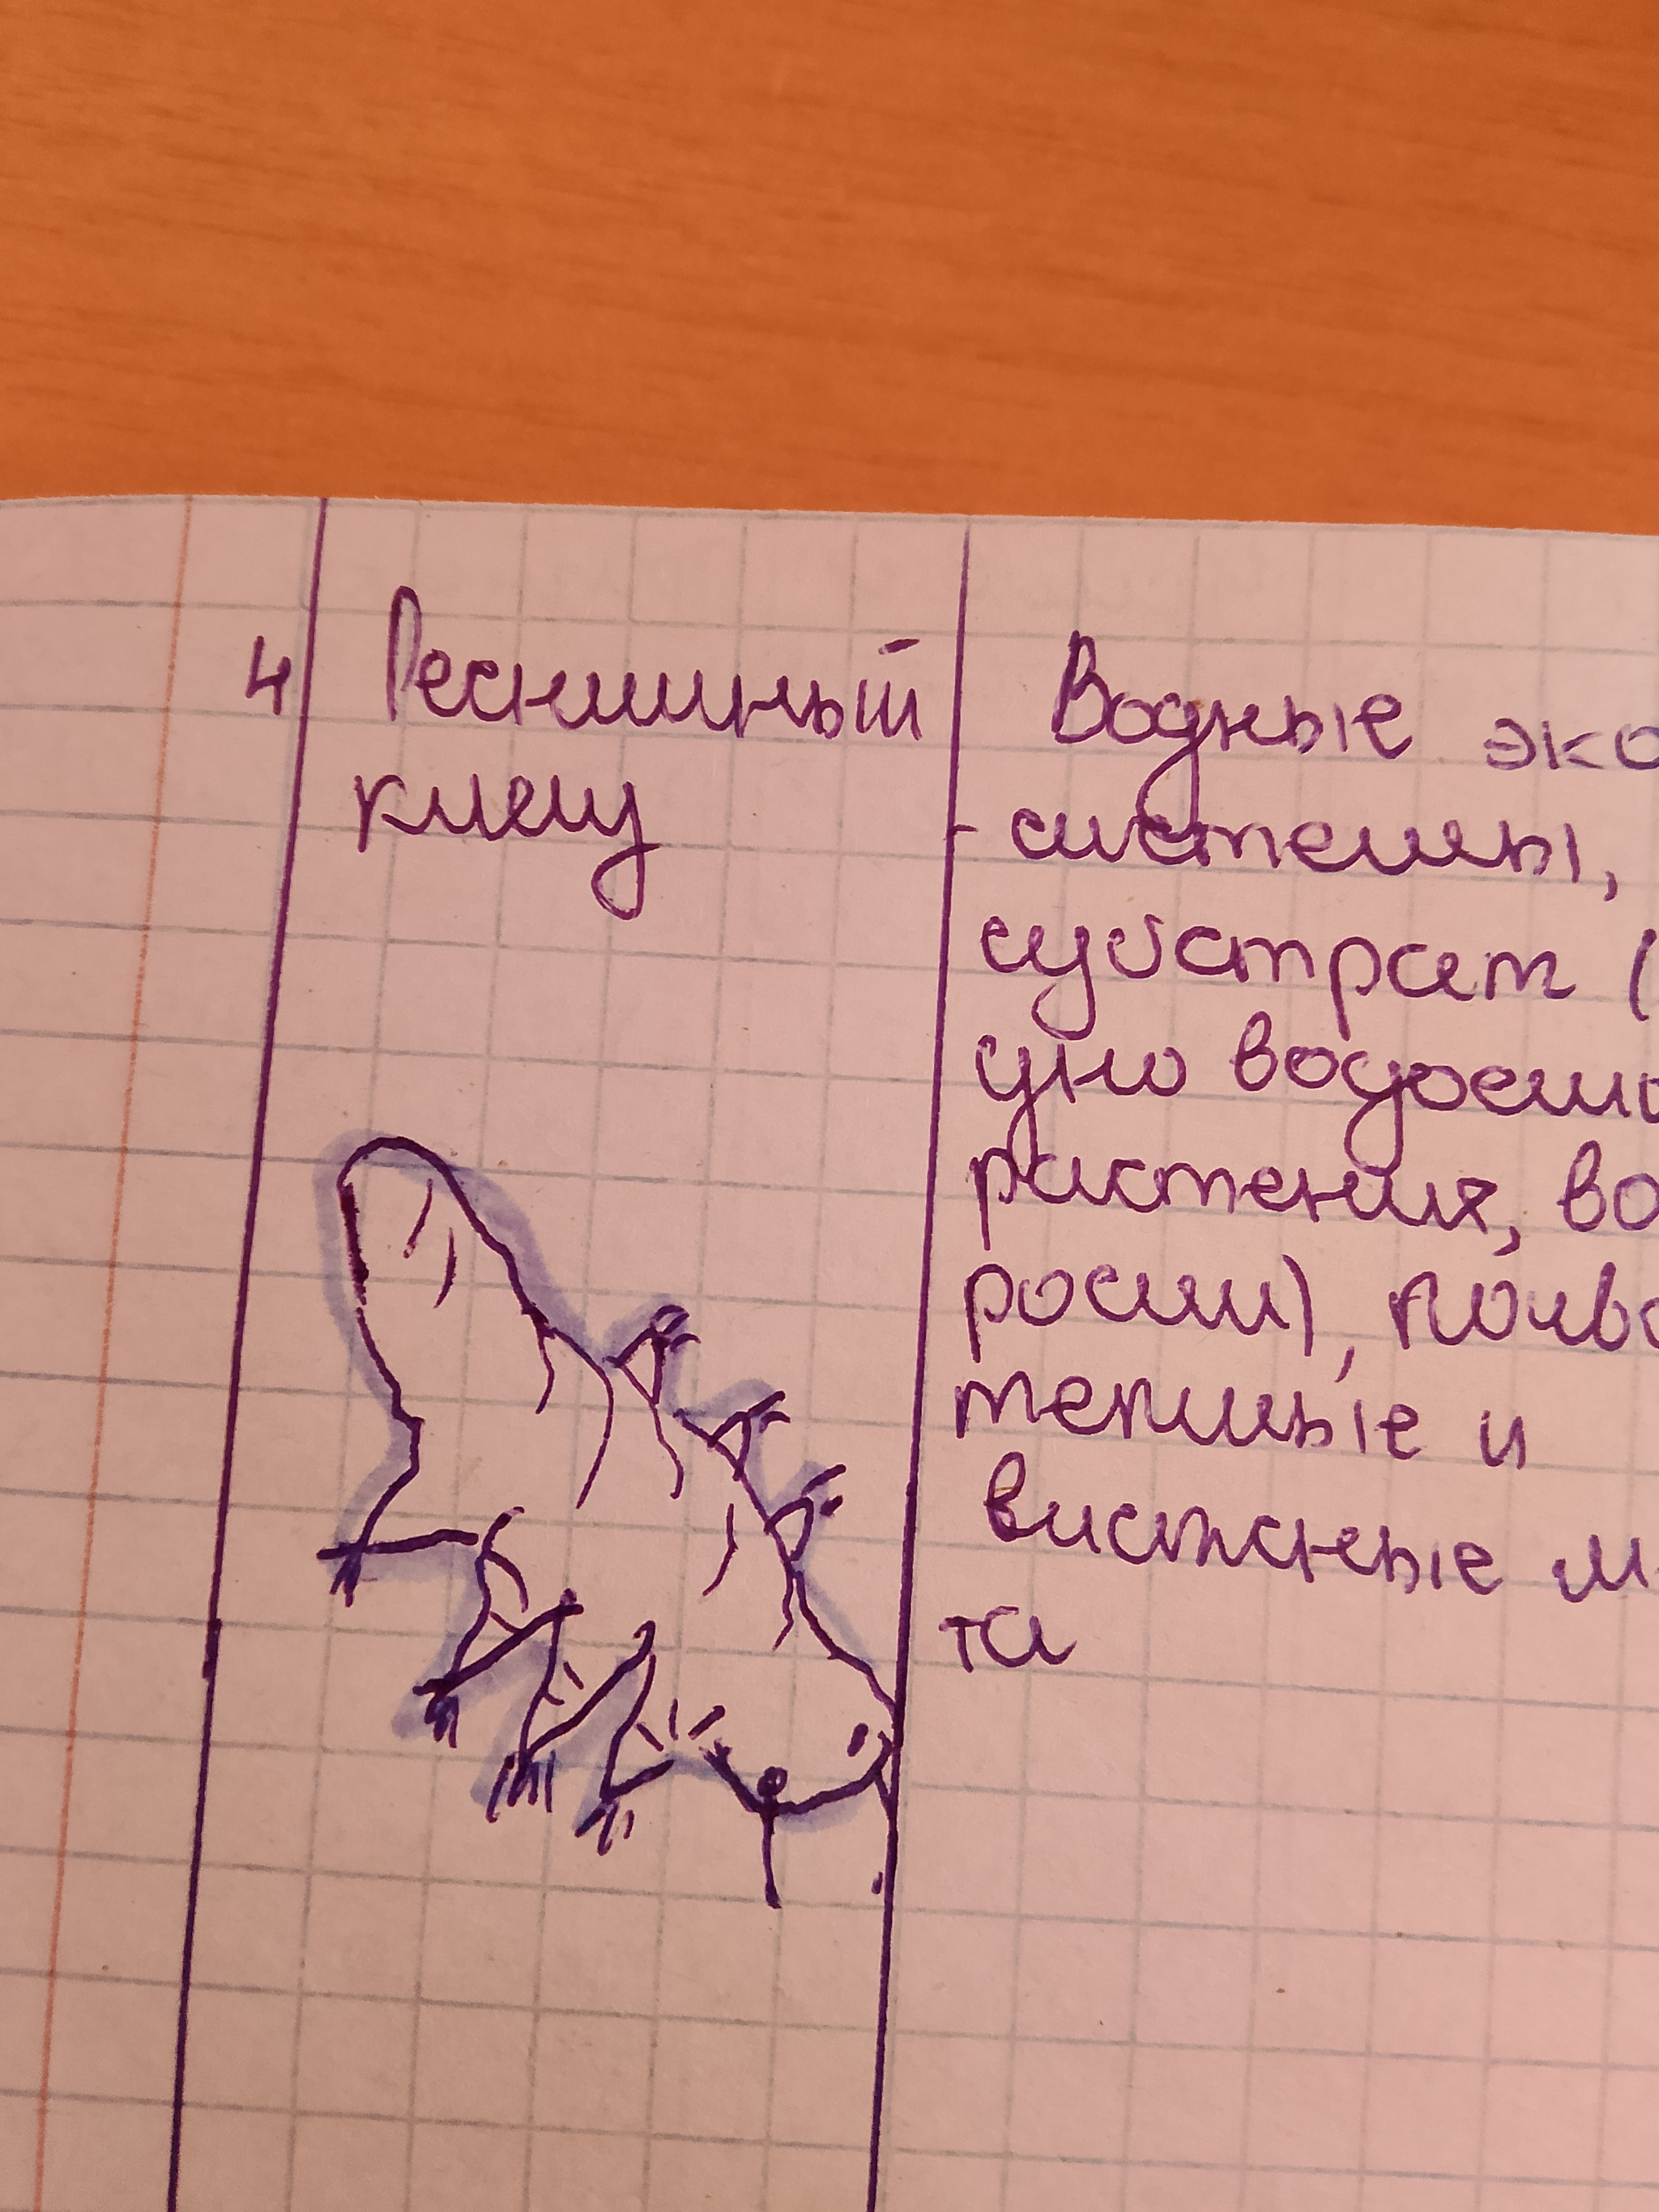 4
Ресничный
клещ
Водные эко
- системы,
субстрат (
дно водоема
растения, во
росли), почва
теплые и
влажные м
та